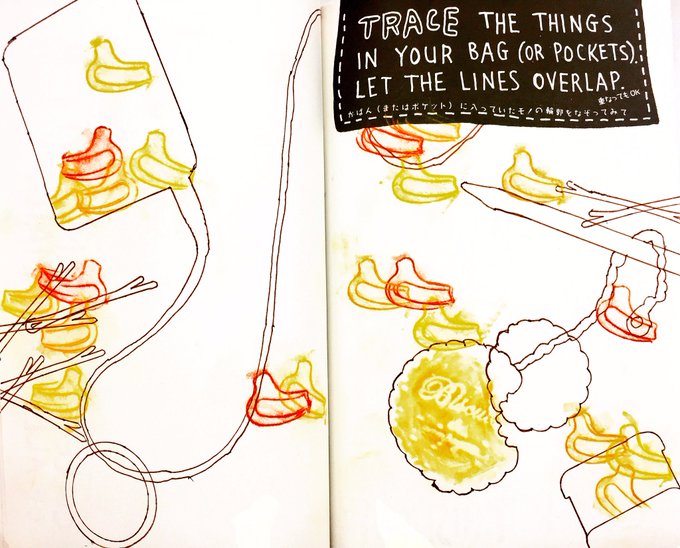 TRACE THE THINGS
IN YOUR BAG (OR POCKETS).
LET THE LINES OVERLAP.
重なってもOK
かばん(またはポケット)に入っていたモノの輪郭をなぞってみて